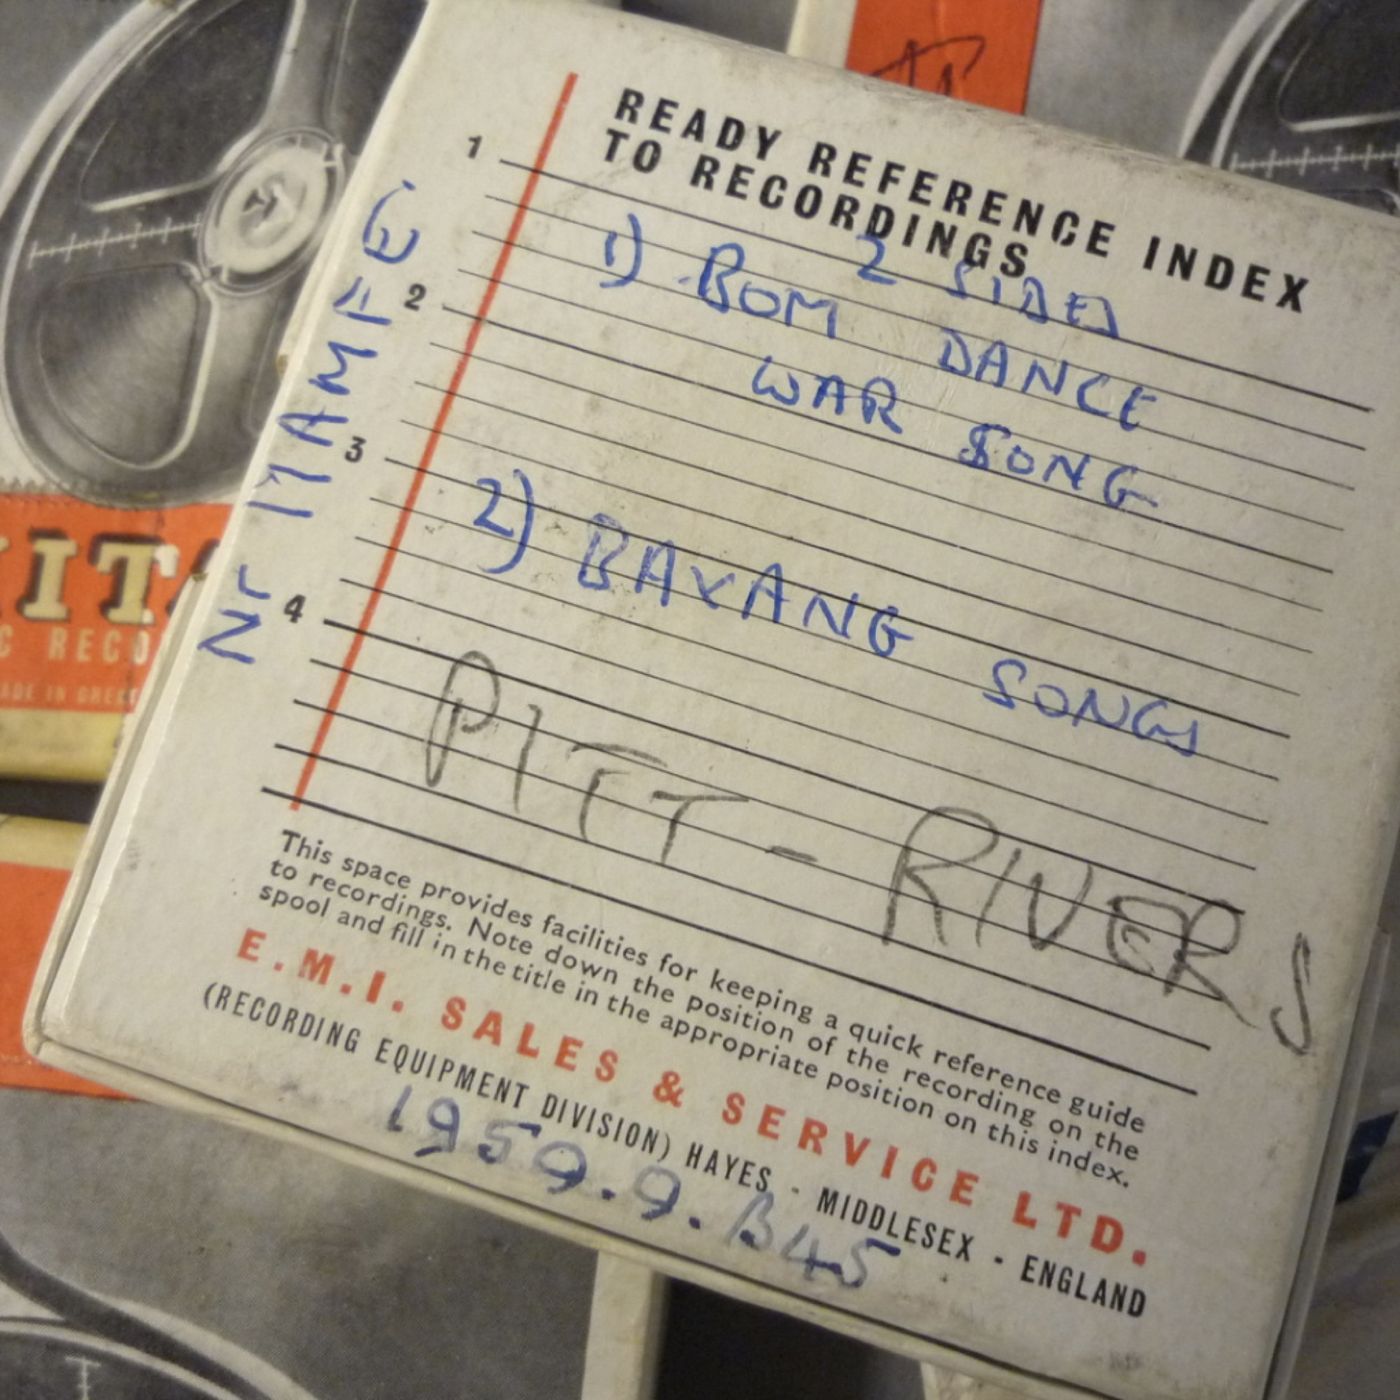 READY REFERENCE INDEX
TO RECORDINGS
2 SIDES
1) BOM DANCE
WAR SONG
2) BAYANG SONGS
PITT-RIVERS
1
2
3
4
Nr MAMFE
This space provides facilities for keeping a quick reference guide
to recordings. Note down the position of the recording on the
spool and fill in the title in the appropriate position on this index.
E.M.I. SALES & SERVICE LTD.
(RECORDING EQUIPMENT DIVISION) HAYES - MIDDLESEX - ENGLAND
1959.9.B45